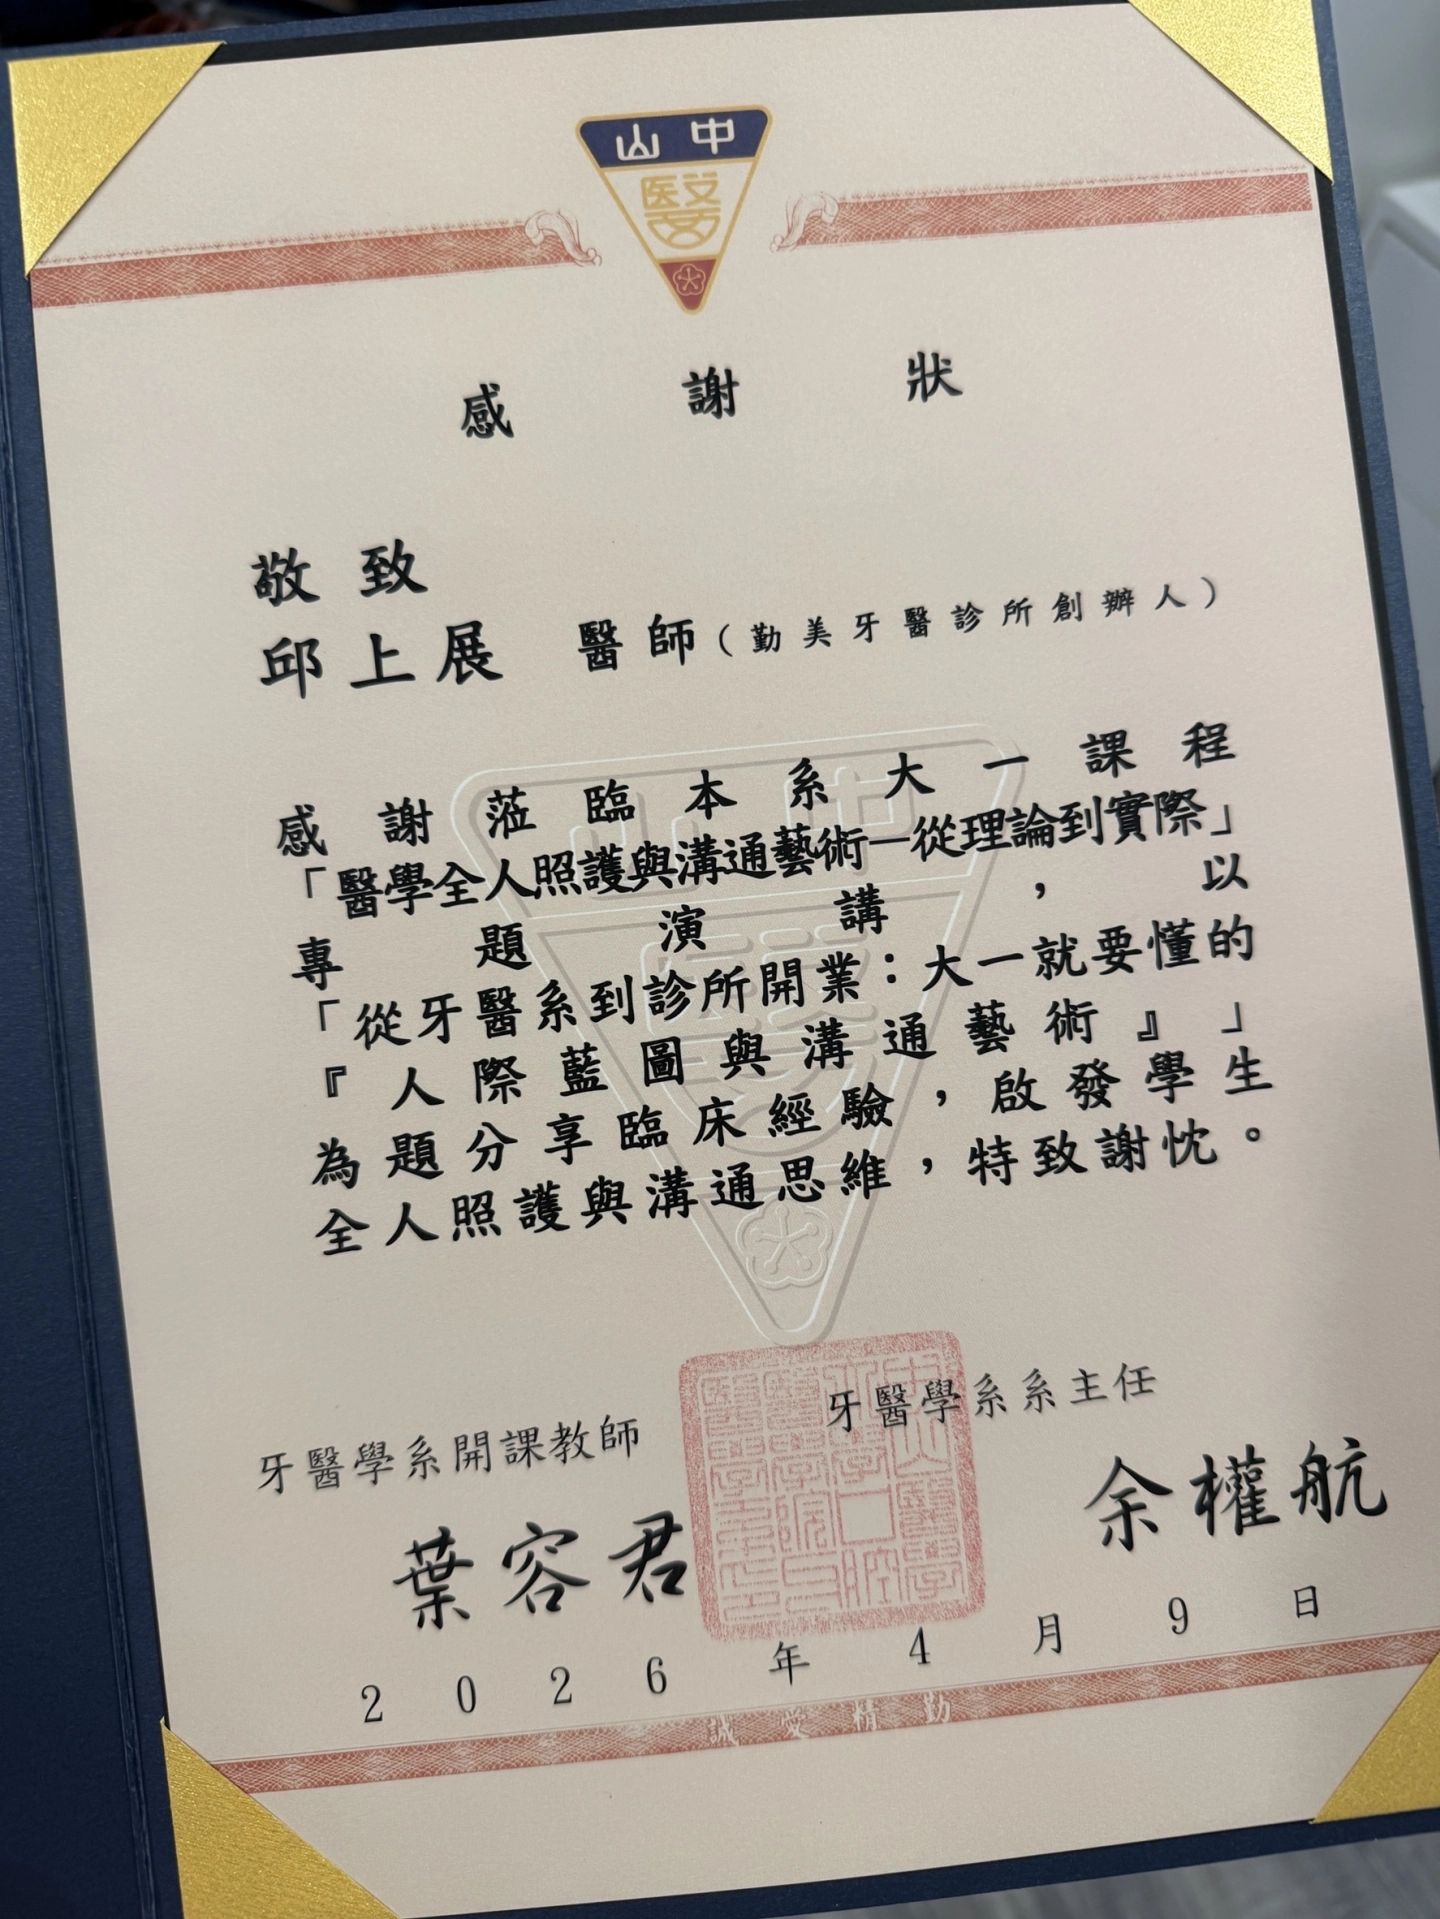 中山
醫
感謝狀
敬致
邱上展 醫師(勤美牙醫診所創辦人)
感謝蒞臨本系大一課程
「醫學全人照護與溝通藝術—從理論到實際」
專題演講，以
「從牙醫系到診所開業：大一就要懂的
『人際藍圖與溝通藝術』」
為題分享臨床經驗，啟發學生
全人照護與溝通思維，特致謝忱。
牙醫學系開課教師
牙醫學系系主任
葉容君
余權航
2026年4月9日
誠愛精勤